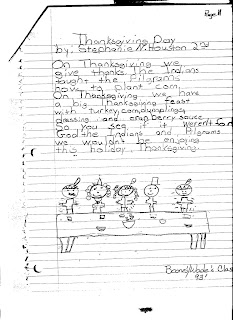 Page 11
Thanksgiving Day
by: Stephanie N. Houston 2nd
On Thanksgiving we
give thanks. The Indians
taught the Pilgrams
how to plant corn.
On Thanksgiving we have
a big Thanksgiving feast
with turkey, corn, dumplings,
dressing, and cranberry sauce.
So You see, if it weren't for
God the Indians and Pilgrams
we wouldn't be enjoying
this holiday, Thanksgiving.
Class